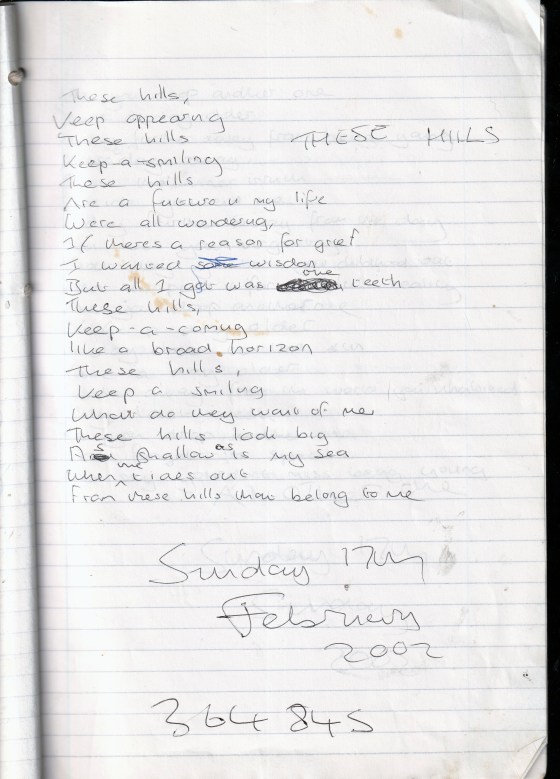 These hills,
Keep appearing
THESE HILLS
These hills
Keep-a-smiling
These hills
Are a future in my life
Were all wondering,
If theres a reason for grief
I wanted wisdom
But all I got was one teeth
These hills,
Keep-a-coming
like a broad horizon
These hills,
Keep a smiling
What do they want of me
These hills look big
As shallow as is my sea
When the tides out
From these hills that belong to me
Sunday 17th
February
2002
364 845